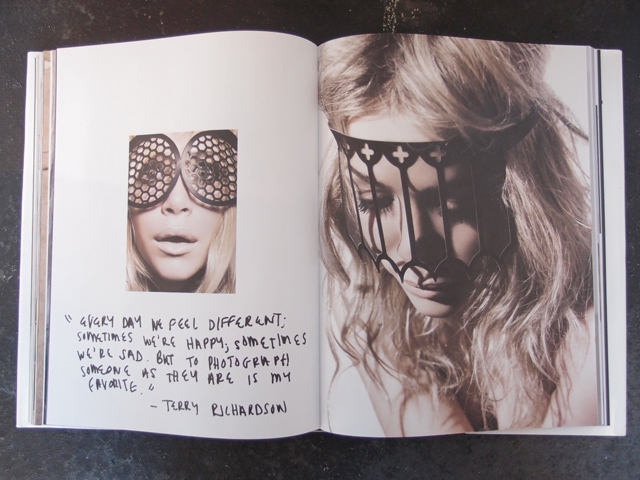 " EVERY DAY WE FEEL DIFFERENT;
SOMETIMES WE'RE HAPPY, SOMETIMES
WE'RE SAD. BUT TO PHOTOGRAPH
SOMEONE AS THEY ARE IS MY
FAVORITE. "
- TERRY RICHARDSON